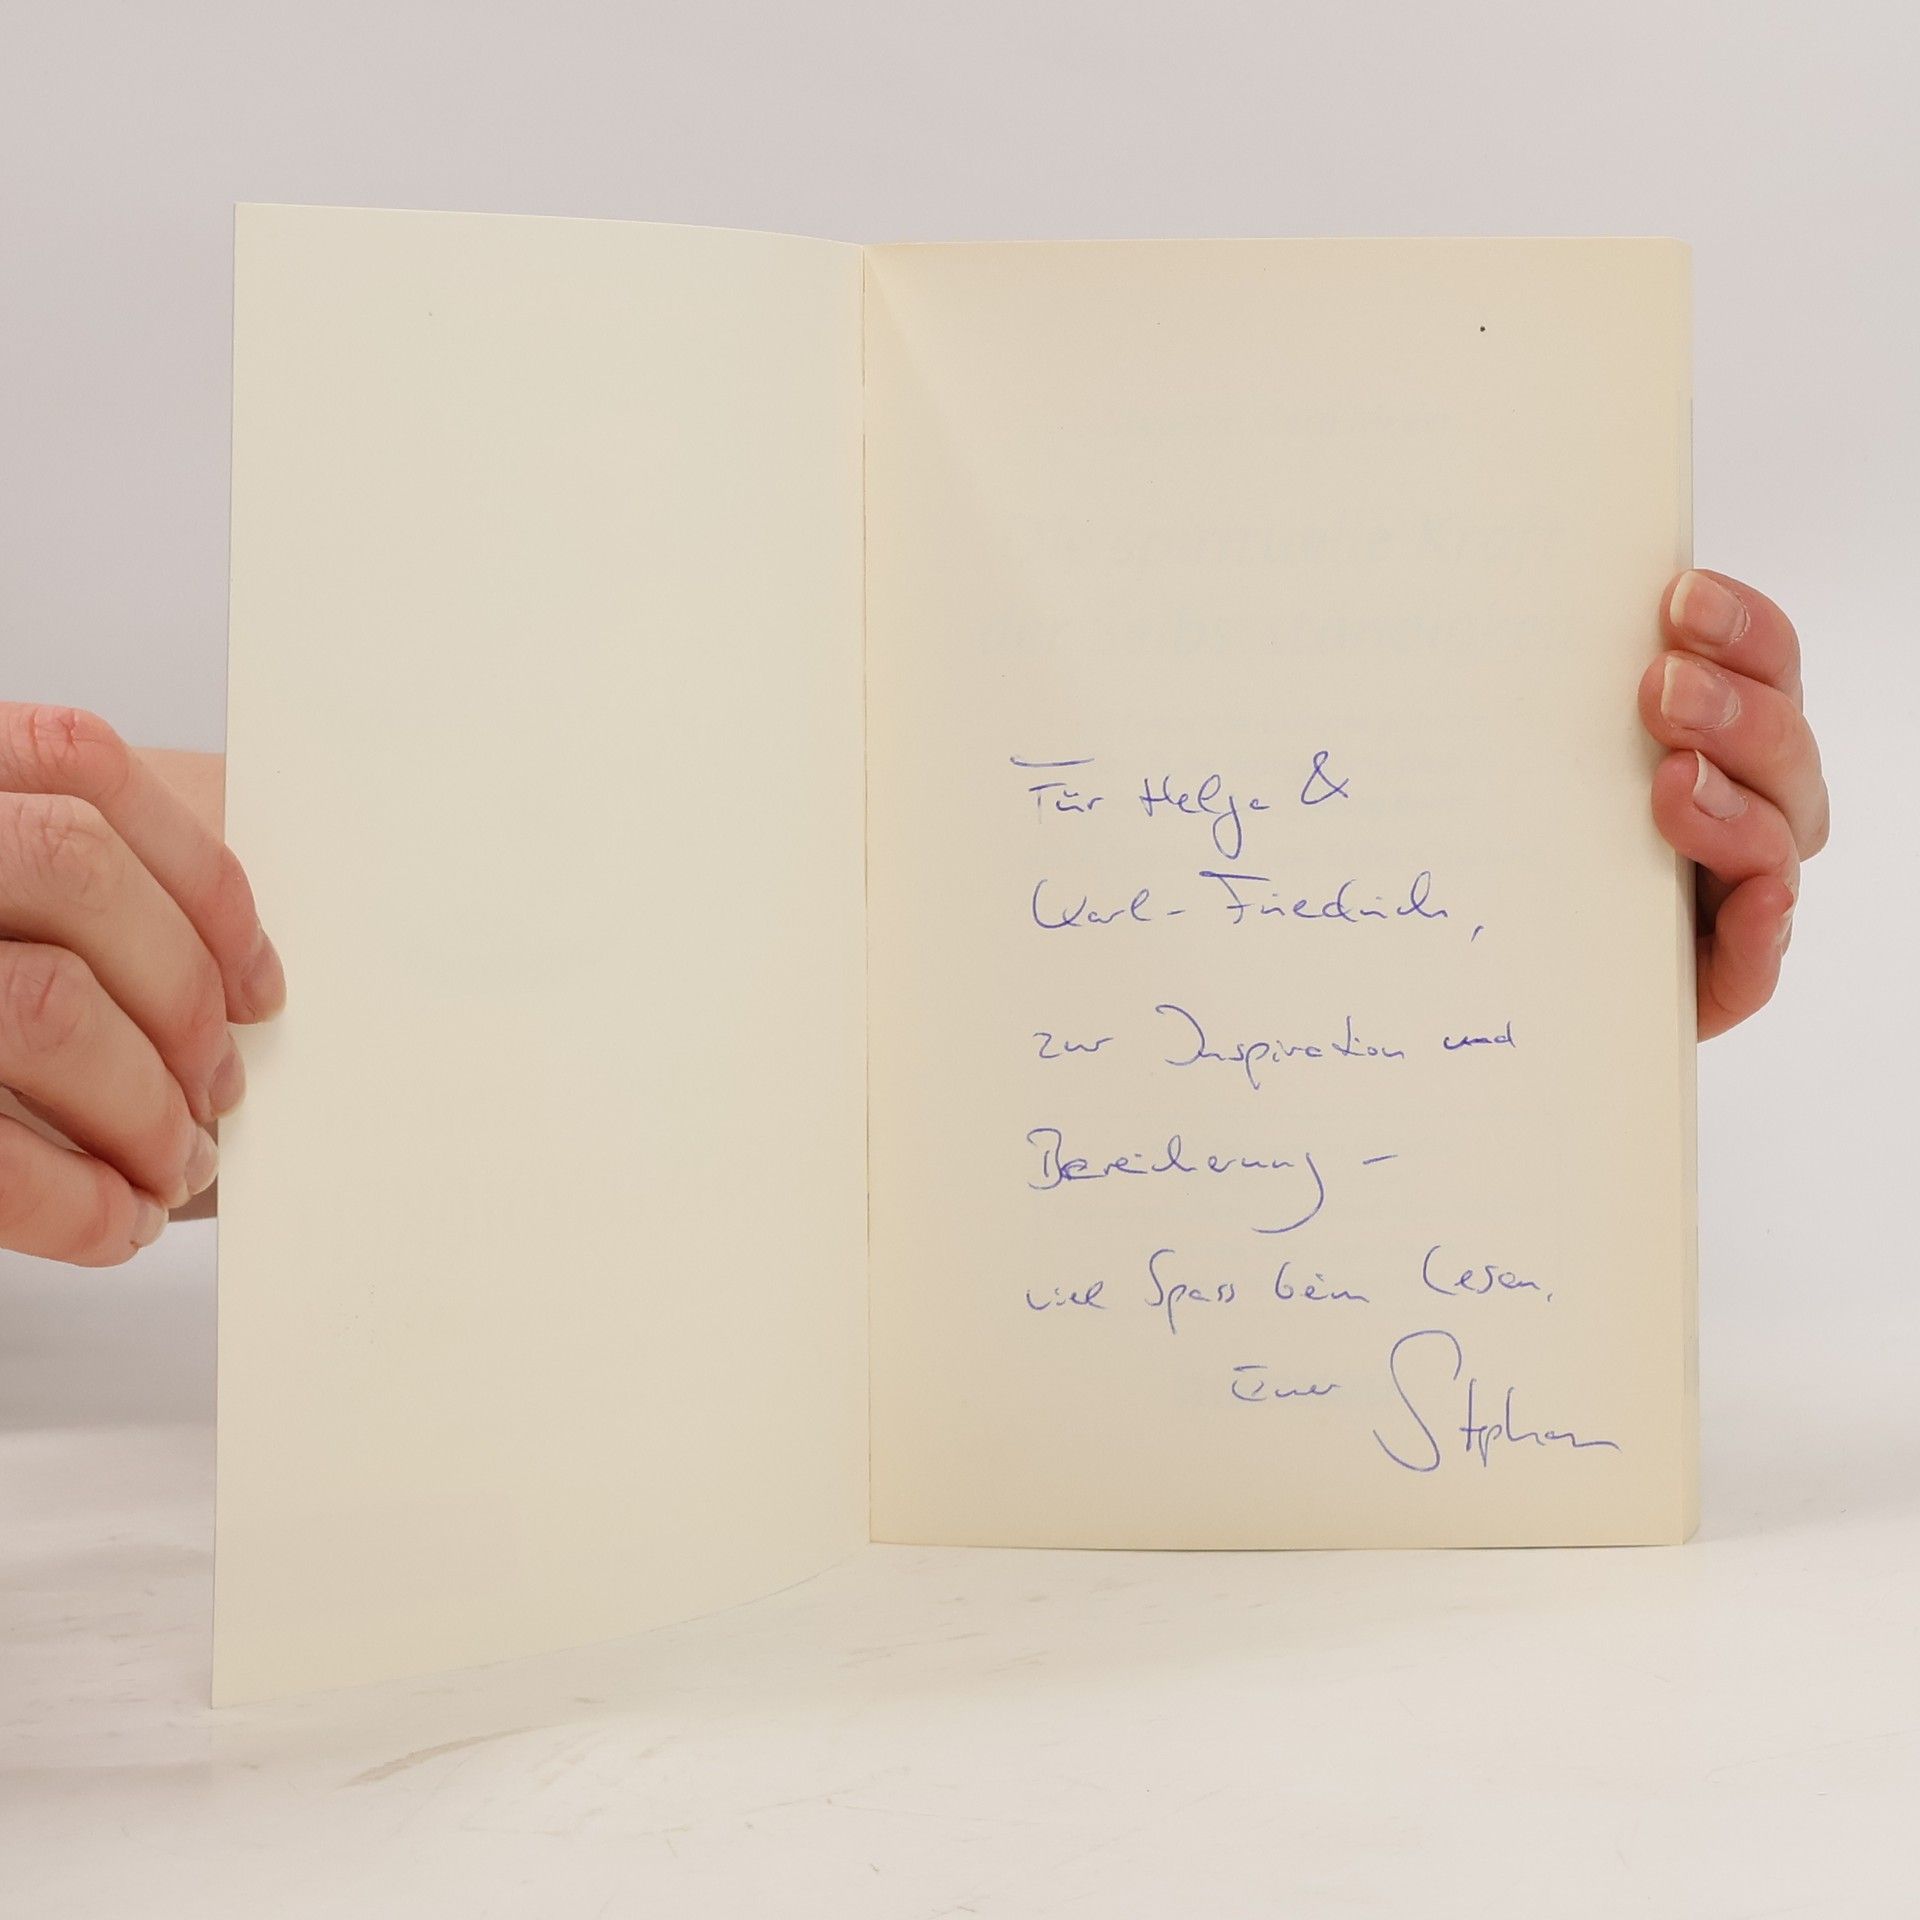 Für Helga &
Karl-Friedrich,
zur Inspiration und
Bereicherung -
viel Spass beim Lesen,
Euer Stephan